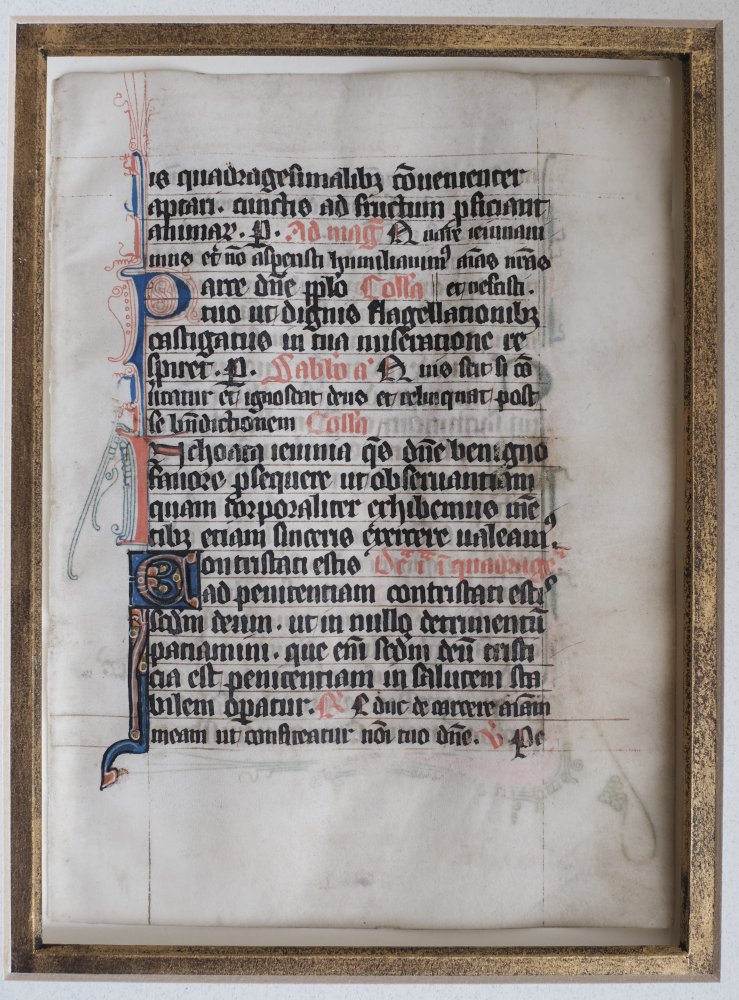 is quadragesimalibꝫ cōuenienter
aptari. cunctis ad fructum ꝓficiant
animaꝝ. P. Ad mag̅ A uuſte ieiunaui
mus et nō aspexisti humiliauimꝰ aīas nr̄as
Parce dn̄e ppl̄o Coll̄a et nesciſti.
tuo ut dignis flagellationibꝫ
castigatus in tua miseratione re
spiret. P. Sabb̄o a͛ A uis scit si cō
uertatur et ignoscat deus et relinquat post
se bn̄dictionem Coll̄a
Inchoata ieiunia q̄s dn̄e benigno
fauore ꝓsequere ut obseruantiam
quam corporaliter exhibemus mē
tibꝫ etiam sinceris exercere ualeamꝰ
Contristati estis Dc̄a īa ī quadrage͛
ad penitentiam contristati estis
scd̄m deum. ut in nullo detrimentū
paciamini. que em̄ scd̄m deū tristi
cia est penitentiam in salutem sta
bilem operatur. R̸ E duc de carcere aīam
meam ut confiteatur nōi tuo dn̄e. V̸ Pe